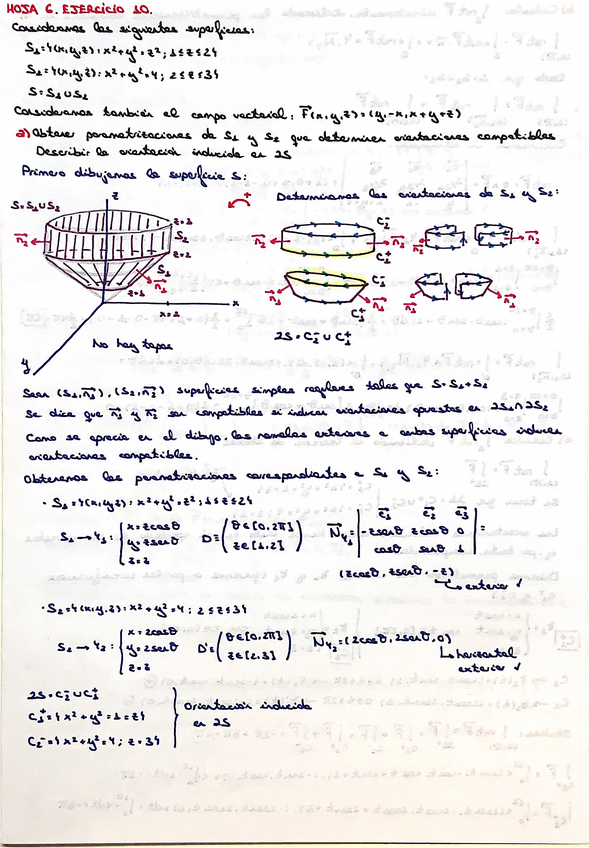 HOJA 6. EJERCICIO 10.
Consideramos las siguientes superficies:
S₁={(x,y,z): x²+y²=z²; 1≤z≤2}
S₂={(x,y,z): x²+y²=4; 2≤z≤3}
S=S₁∪S₂
Consideramos también el campo vectorial: F(x,y,z)=(y,-x,x+y+z)
a) Obtener parametrizaciones de S₁ y S₂ que determinen orientaciones compatibles
Describir la orientación inducida en ∂S
Primero dibujamos la superficie S:
Determinamos las orientaciones de S₁ y S₂:
S=S₁∪S₂
z
z=3
S₂
n₂
z=2
S₁
n₁
z=1
x
x=1
y
No hay tapas
+
C₂⁻
n₂
n₂
C₂⁺
n₂
n₂
C₁⁻
n₁
n₁
C₁⁺
n₁
n₁
∂S=C₂⁻∪C₁⁺
Sean (S₁,n₁), (S₂,n₂) superficies simples regulares tales que S=S₁+S₂
Se dice que n₁ y n₂ son compatibles si inducen orientaciones opuestas en ∂S₁∩∂S₂
Como se aprecia en el dibujo, las normales exteriores a ambas superficies inducen
orientaciones compatibles.
Obtenemos las parametrizaciones correspondientes a S₁ y S₂:
· S₁={(x,y,z): x²+y²=z²; 1≤z≤2}
S₁→φ₁: { x=zcosθ
y=zsenθ
z=z
D≡( θ∈[0,2π]
z∈[1,2] )
N_φ₁= | e₁ e₂ e₃
-zsenθ zcosθ 0
cosθ senθ 1 | =
(zcosθ, zsenθ, -z)
↳ exterior ✓
· S₂={(x,y,z): x²+y²=4; 2≤z≤3}
S₂→φ₂: { x=2cosθ
y=2senθ
z=z
D'≡( θ∈[0,2π]
z∈[2,3] )
N_φ₂=(2cosθ,2senθ,0)
↳ horizontal
exterior ✓
∂S=C₂⁻∪C₁⁺
C₁⁺={x²+y²=1=z}
C₂⁻={x²+y²=4; z=3}
Orientación inducida
en ∂S